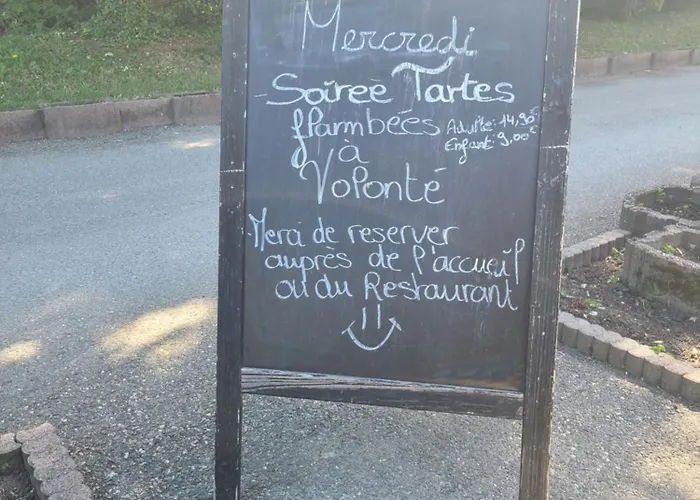 Mercredi
Soirée Tartes
flambées Adulte: 14,90€
Enfant: 9,00€
à
Volonté
Merci de reserver
auprès de l'accueil
ou du Restaurant